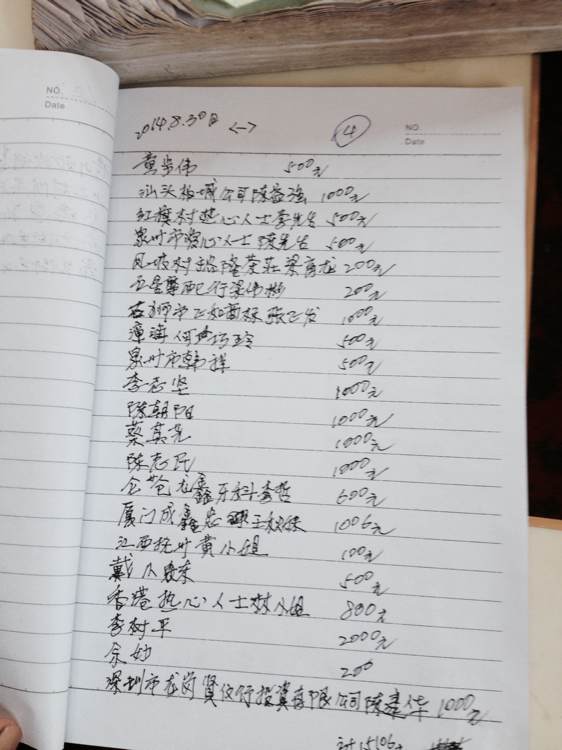 NO.
Date
2014.8.30日 <-> ④
NO.
Date
童 伟 500元
汕头 城公司陈 强 1000元
红旗村热心人士李先生 500元
泉州市热心人士陈先生 500元
凤坡村 隆茶庄梁勇龙 200元
五星 酒行梁伟 200元
石狮市飞如商标张飞发 1000元
漳浦何 巧玲 500元
泉州市韩祥 500元
李志坚 1000元
陈朝阳 1000元
蔡其光 1000元
陈志民 1000元
仑苍龙鑫牙科李哲 600元
厦门成鑫 王 1006元
江西抚州黄小姐 100元
戴 东 500元
香港热心人士林小姐 800元
李树平 2000元
余妙 200
深圳市龙岗贤仪行投资有限公司陈建华 1000元
计15106元